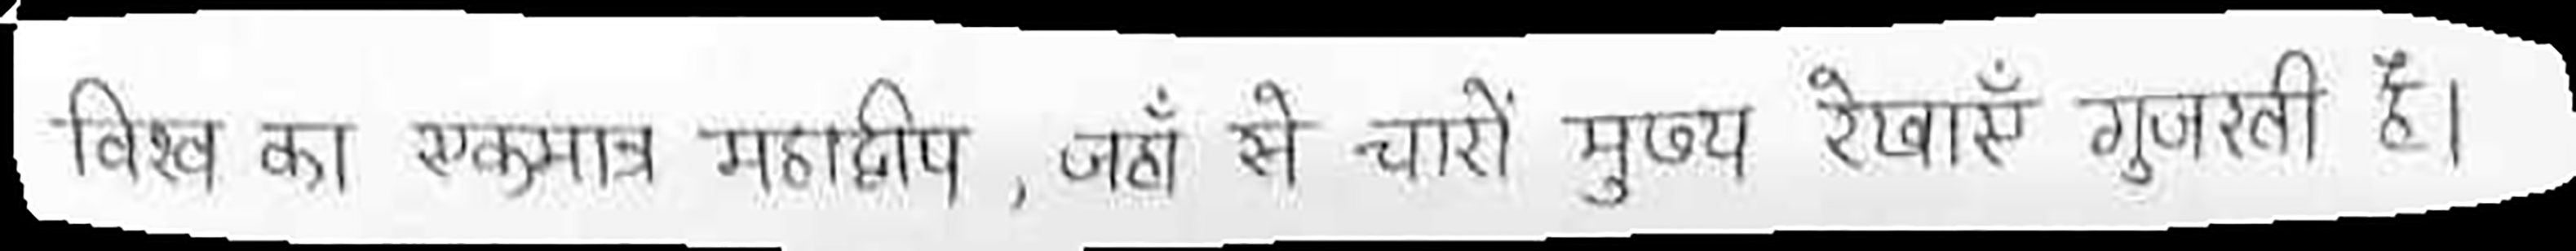 विश्व का एकमात्र महाद्वीप , जहाँ से चारों मुख्य रेखाएँ गुजरती हैं।